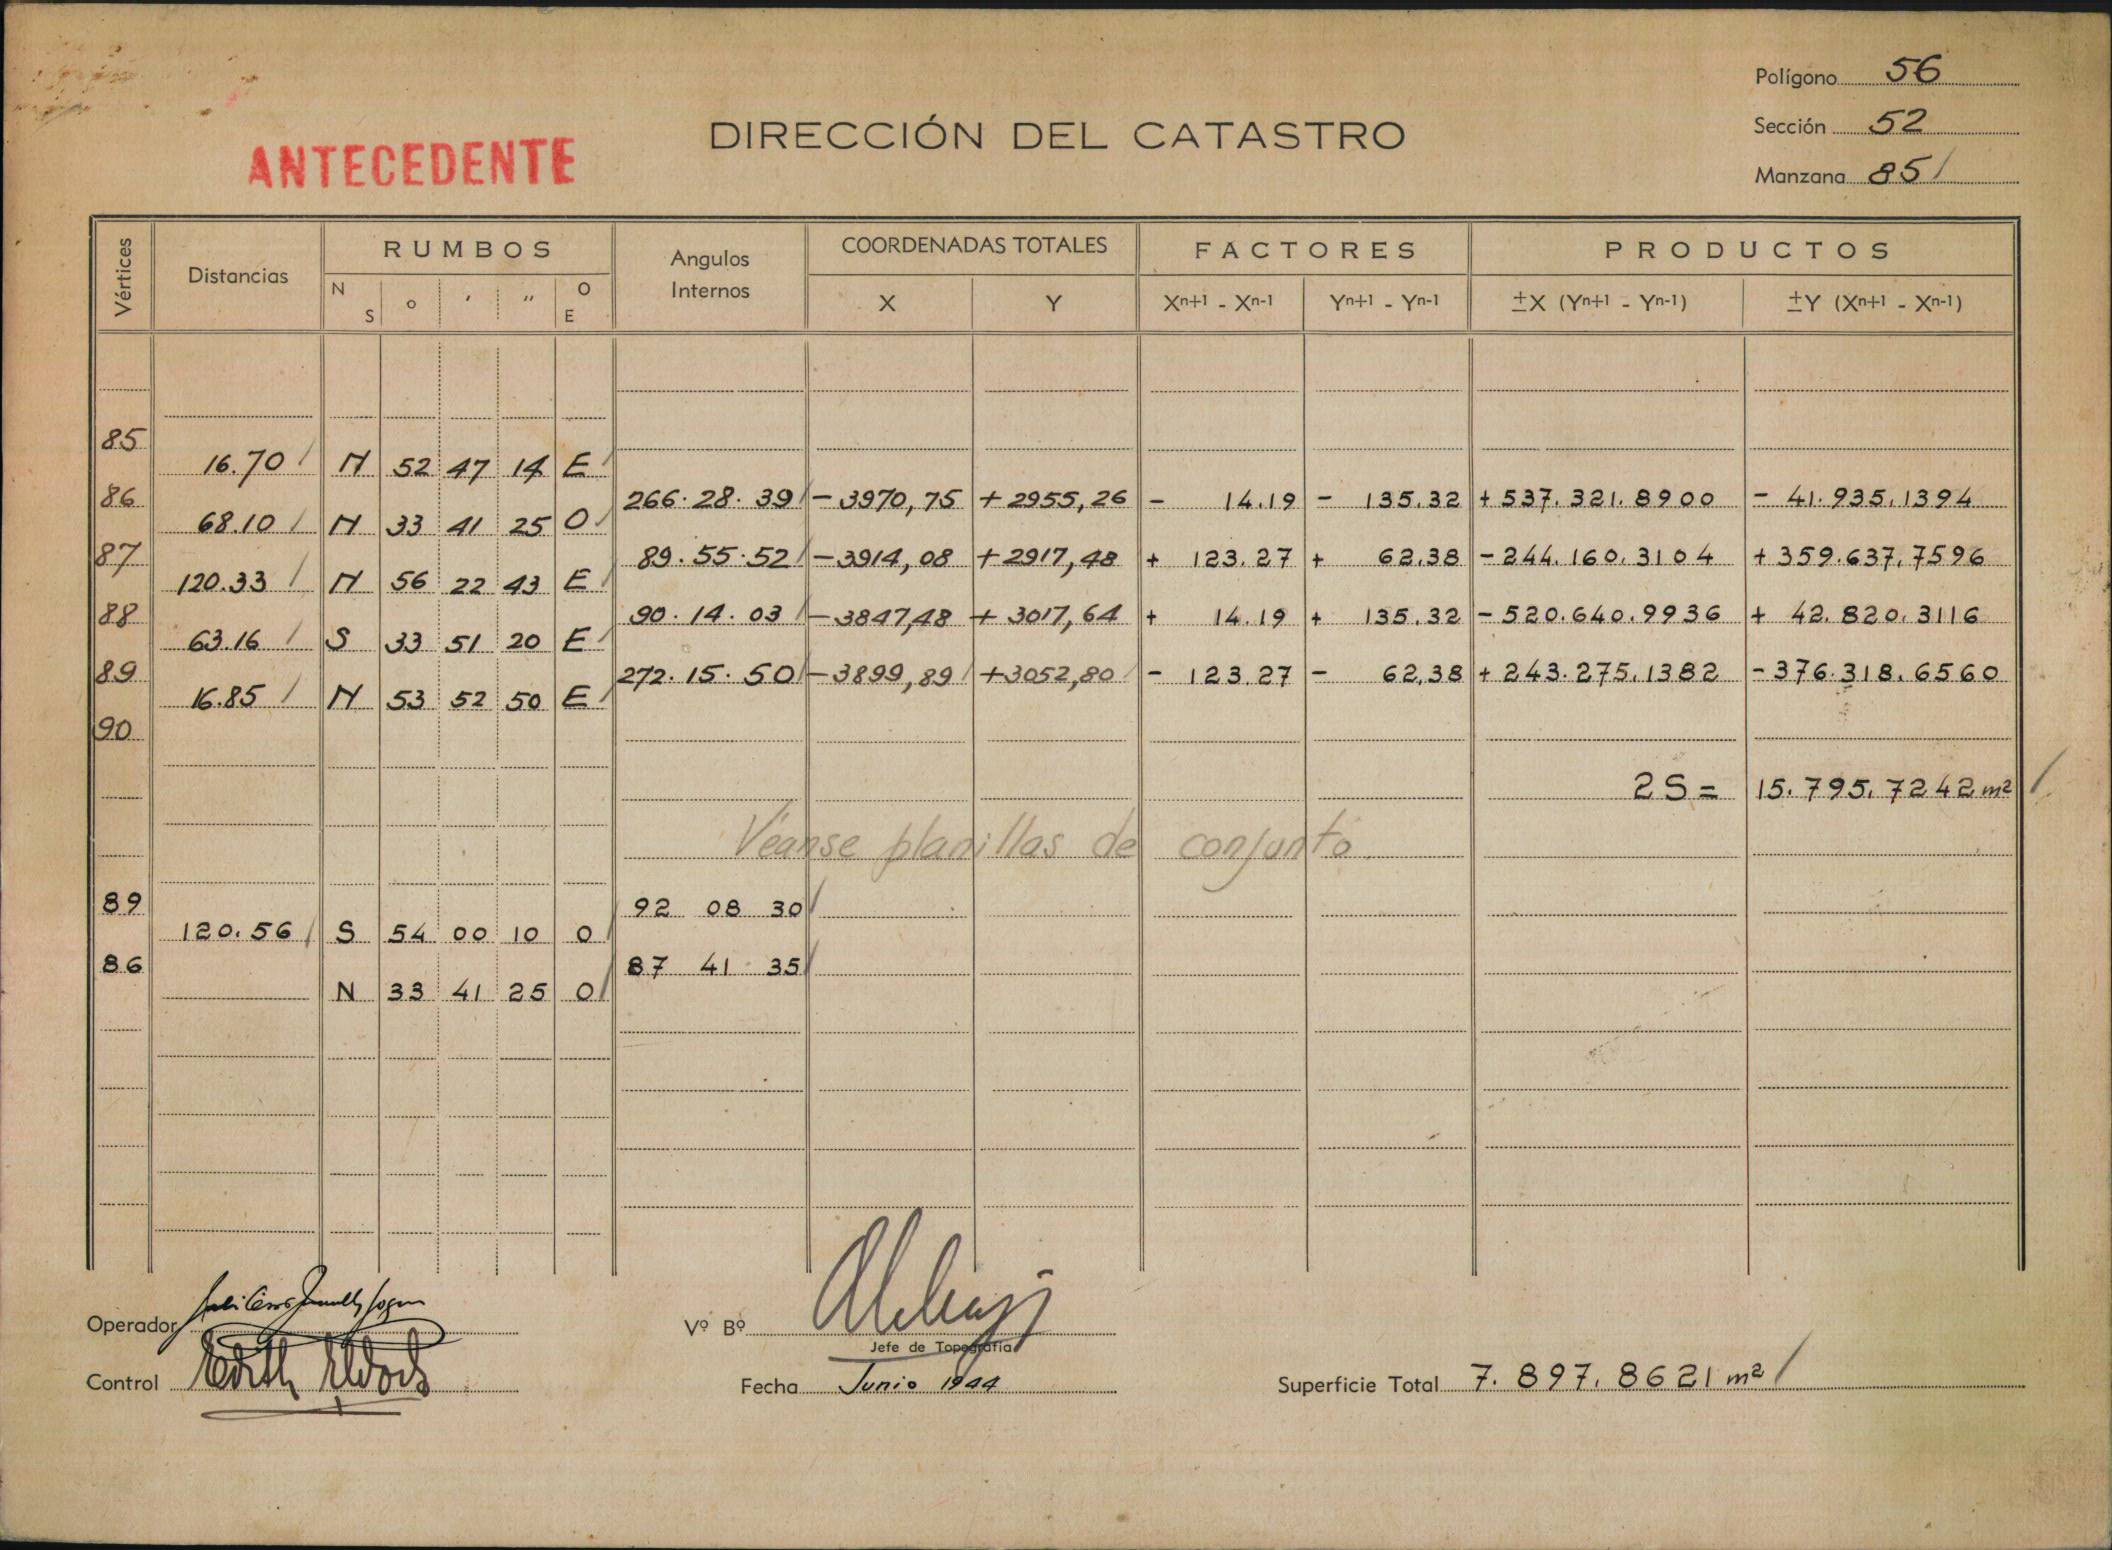 Polígono 56
DIRECCIÓN DEL CATASTRO
Sección 52
ANTECEDENTE
Manzana 85
Vértices Distancias RUMBOS Angulos Internos COORDENADAS TOTALES FACTORES PRODUCTOS
N S o ′ ″ O E X Y Xn+1 - Xn-1 Yn+1 - Yn-1 ±X (Yn+1 - Yn-1) ±Y (Xn+1 - Xn-1)
85
16.70 N 52 47 14 E
86 266.28.39 -3970,75 +2955,26 - 14.19 - 135.32 +537.321.8900 - 41.935.1394
68.10 N 33 41 25 O
87 89.55.52 -3914,08 +2917,48 + 123.27 + 62.38 -244.160.3104 +359.637.7596
120.33 N 56 22 43 E
88 90.14.03 -3847,48 +3017,64 + 14.19 + 135.32 -520.640.9936 + 42.820.3116
63.16 S 33 51 20 E
89 272.15.50 -3899,89 +3052,80 - 123.27 - 62,38 +243.275.1382 -376.318.6560
16.85 N 53 52 50 E
90
2S= 15.795.7242 m²
Véanse planillas de conjunto.
89 92 08 30
120.56 S 54 00 10 O
86 87 41 35
N 33 41 25 O
Operador
Vº Bº
Jefe de Topografía
Control Edith
Fecha Junio 1944
Superficie Total 7.897.8621 m²